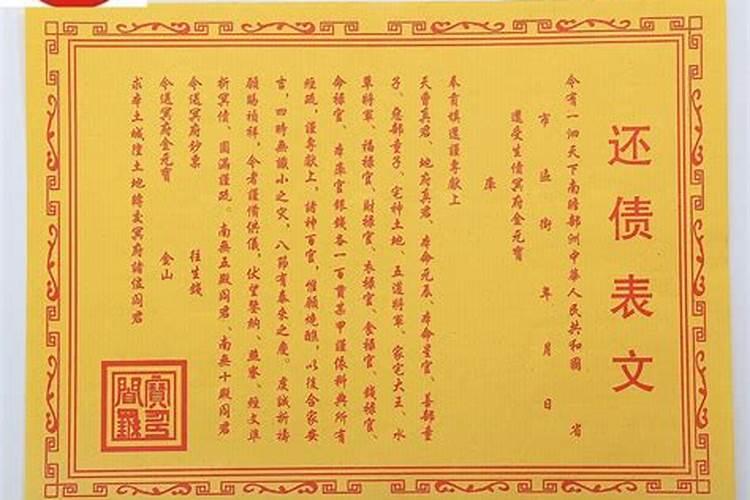 还债表文
今有一泗天下南瞻部洲中華人民共和國 省
市 區 街 年 月 日
還受生債冥府金元寶
庫
奉肯填還謹專献上
天曹真君、地府真君、本命元辰、本命星官、善部童
子、惡部童子、宅神土地、五道將軍、家宅大王、水
草將軍、福禄官、財禄官、衣禄官、食禄官、錢禄官、
命禄官、本庫官銀錢各一百貫某甲謹依科典所有
經疏，謹專献上，諸神百官，惟願燒醮，以後合家安
言，四時無讖小之灾，八節有泰來之慶。虔誠祈禱
願賜禎祥，令者謹備供儀，伏望鑒納、燕寮、經文準
折冥債、圓滿謹疏。南無五殿阎君、南無十殿阎君
令送冥府鈔票 往生錢
令送冥府金元寶 金山
求本土城隍土地轉交冥府諸位阎君